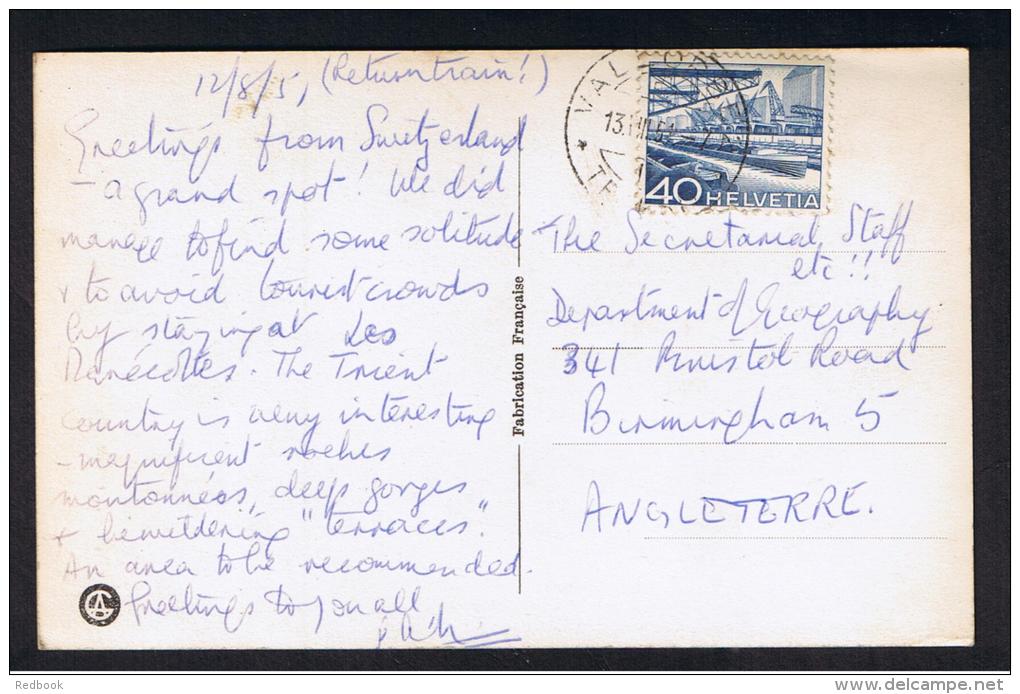 12/8/51 (Return train!)
Greetings from Switzerland
– a grand spot! We did
manage to find some solitude
+ to avoid tourist crowds
by staying at Les
Marécottes. The Trient
country is very interesting
– magnificent roches
moutonnées, deep gorges
+ bewildering "terraces".
An area to be recommended.
Greetings to you all
Fabrication Française
40 HELVETIA
The Secretarial Staff
etc!!
Department of Geography
341 Bristol Road
Birmingham 5
ANGLETERRE.
Redbook
delcampe.net